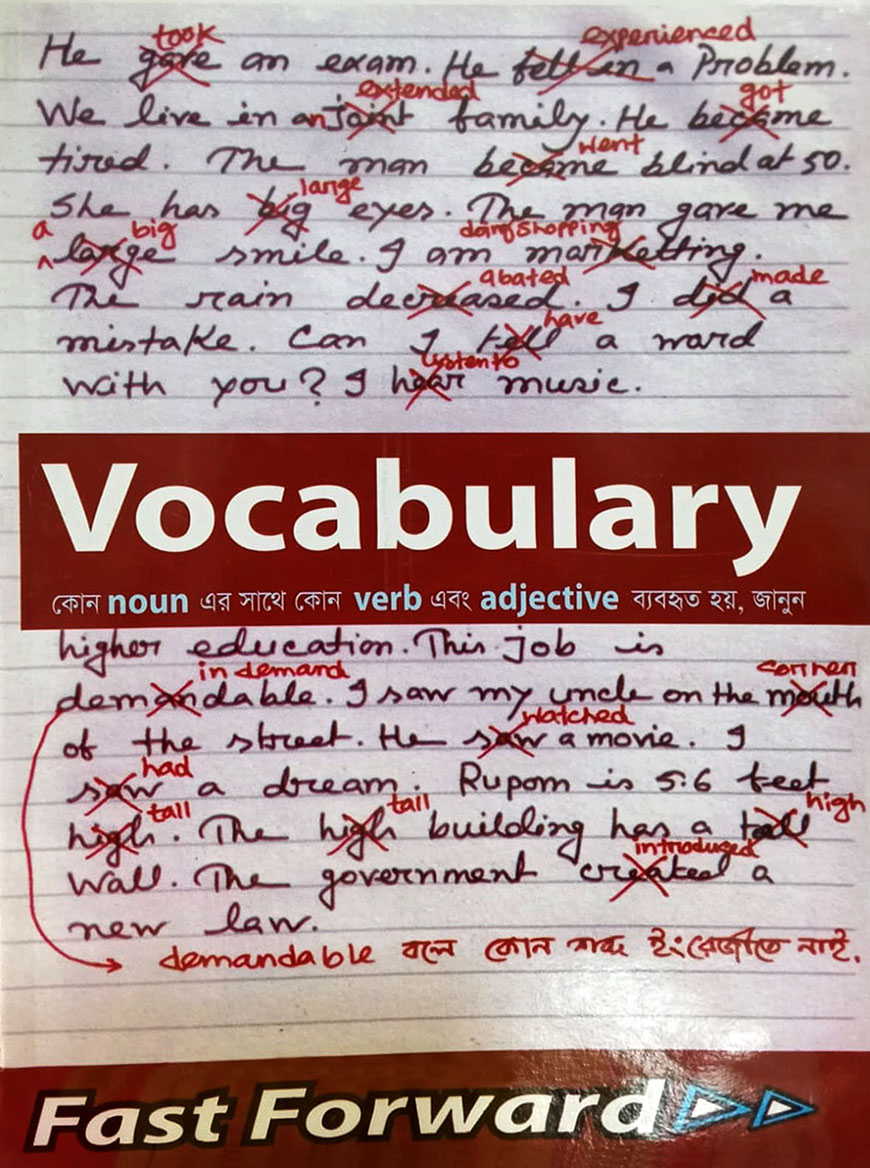 took experienced
He gave an exam. He fell in a Problem.
extended got
We live in an joint family. He became
went
tired. The man became blind at 50.
large
She has big eyes. The man gave me
a big doing shopping
large smile. I am marketting.
abated made
The rain decreased. I did a
have
mistake. Can I tell a word
listen to
with you? I hear music.
Vocabulary
কোন noun এর সাথে কোন verb এবং adjective ব্যবহৃত হয়, জানুন
higher education. This job is
in demand corner
demandable. I saw my uncle on the mouth
watched
of the street. He saw a movie. I
had
saw a dream. Rupom is 5.6 feet
tall tall high
high. The high building has a tall
introduced
wall. The government created a
new law.
demandable বলে কোন শব্দ ইংরেজীতে নাই.
Fast Forward